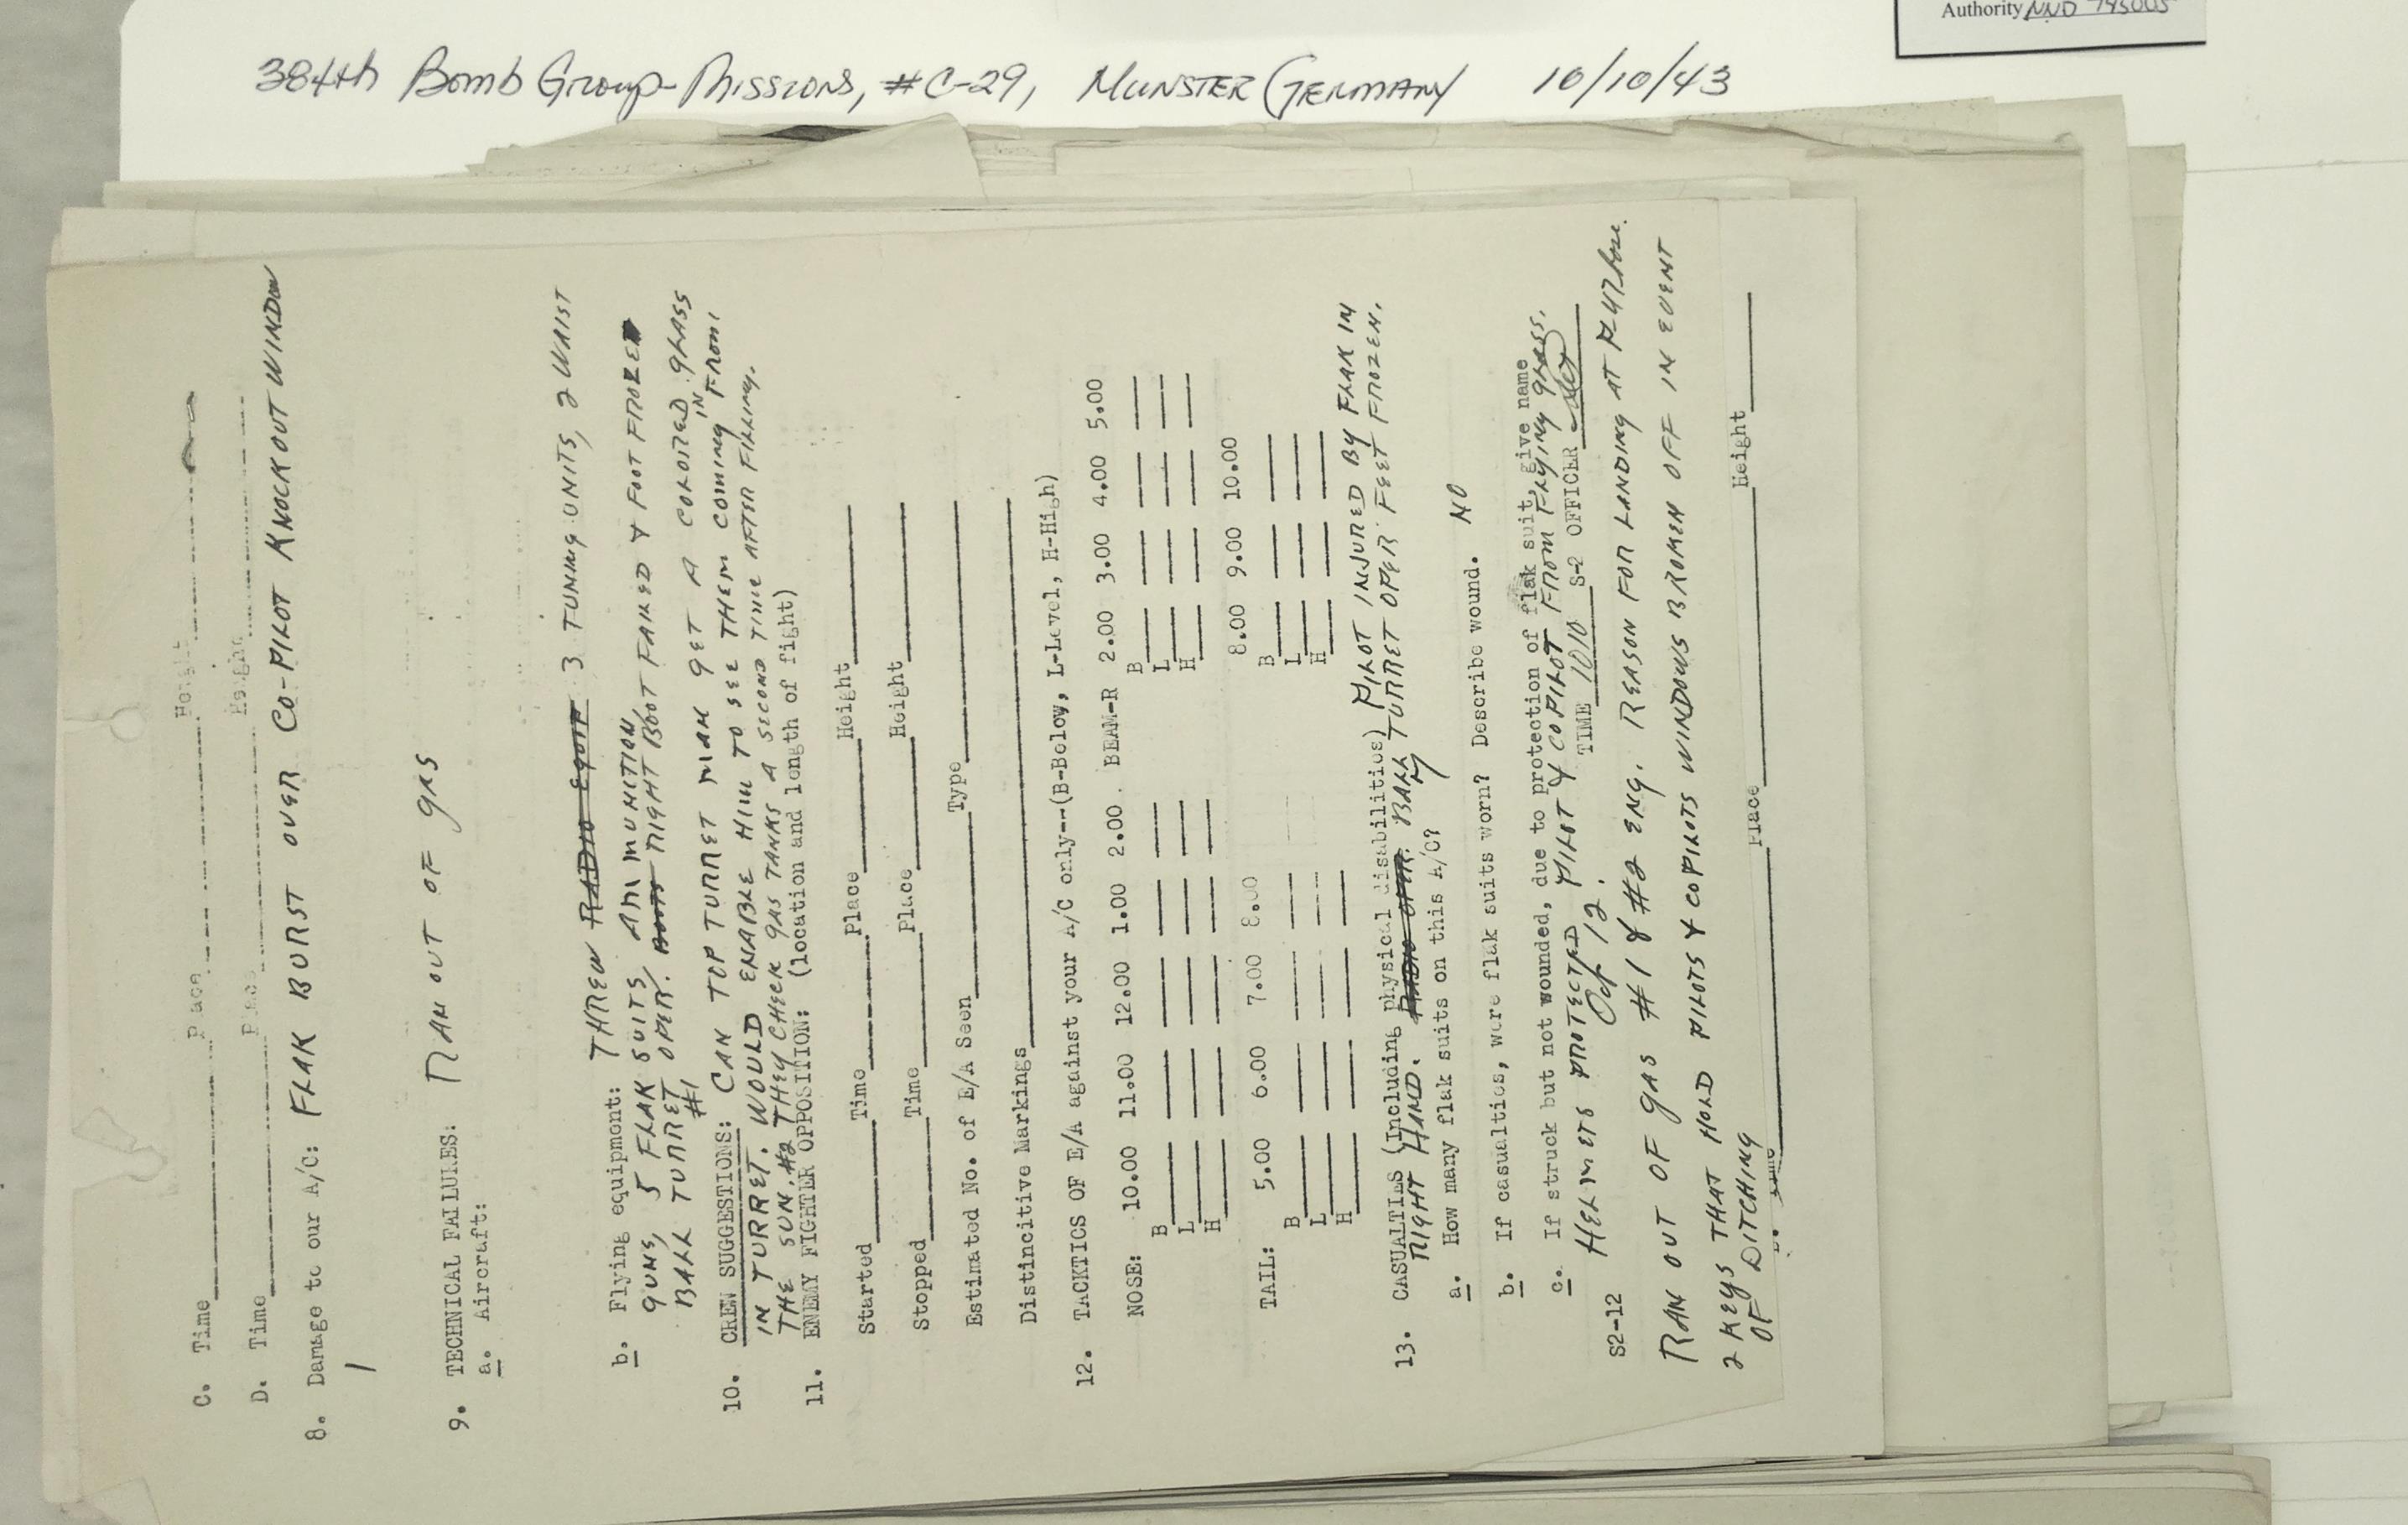 Authority NND 745005
384th Bomb Group-Missions, #C-29, Munster Germany 10/10/43
C. Time Place Height
D. Time Place Height
8. Damage to our A/C: FLAK BURST OVER CO-PILOT KNOCKOUT WINDOW
1
9. TECHNICAL FAILURES: RAN OUT OF GAS
a. Aircraft:
b. Flying equipment: THREW RADIO EQUIP 3 TUNING UNITS, 2 WAIST
GUNS, 5 FLAK SUITS AMMUNITION
BALL TURRET OPER. BOOTS RIGHT BOOT FAILED & FOOT FROZEN
#1
10. CREW SUGGESTIONS: CAN TOP TURRET MAN GET A COLORED GLASS
IN TURRET. WOULD ENABLE HIM TO SEE THEM COMING IN FROM
THE SUN. #2 THEY CHECK GAS TANKS A SECOND TIME AFTER FILLING.
11. ENEMY FIGHTER OPPOSITION: (location and length of fight)
Started Time Place Height
Stopped Time Place Height
Estimated No. of E/A Seen Type
Distincitive Markings
12. TACKTICS OF E/A against your A/C only--(B-Below, L-Level, H-High)
NOSE: 10.00 11.00 12.00 1.00 2.00 BEAM-R 2.00 3.00 4.00 5.00
B B
L L
H H
TAIL: 5.00 6.00 7.00 8.00 8.00 9.00 10.00
B B
L L
H H
13. CASUALTIES (Including physical disabilities) PILOT INJURED BY FLAK IN
RIGHT HAND. RADIO OPER. BALL TURRET OPER FEET FROZEN.
a. How many flak suits on this A/C?
b. If casualties, were flak suits worn? Describe wound. NO
c. If struck but not wounded, due to protection of flak suit, give name
HELMETS PROTECTED PILOT & COPILOT FROM FLYING GLASS.
Oct 12. TIME 1010 S-2 OFFICER
S2-12 #1 & #2 ENG. REASON FOR LANDING AT
RAN OUT OF GAS
2 KEYS THAT HOLD PILOTS & COPILOTS WINDOWS BROKEN OFF IN EVENT
OF DITCHING
Place Height